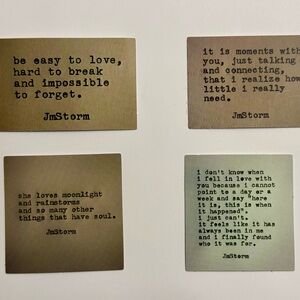 be easy to love,
hard to break
and impossible
to forget.
JmStorm
it is moments with
you, just talking
and connecting,
that i realize how
little i really
need.
JmStorm
she loves moonlight
and rainstorms
and so many other
things that have soul.
JmStorm
i don't know when
i fell in love with
you because i cannot
point to a day or a
week and say "here
it is, this is when
it happened".
i just can't.
it feels like it has
always been in me
and i finally found
who it was for.
JmStorm